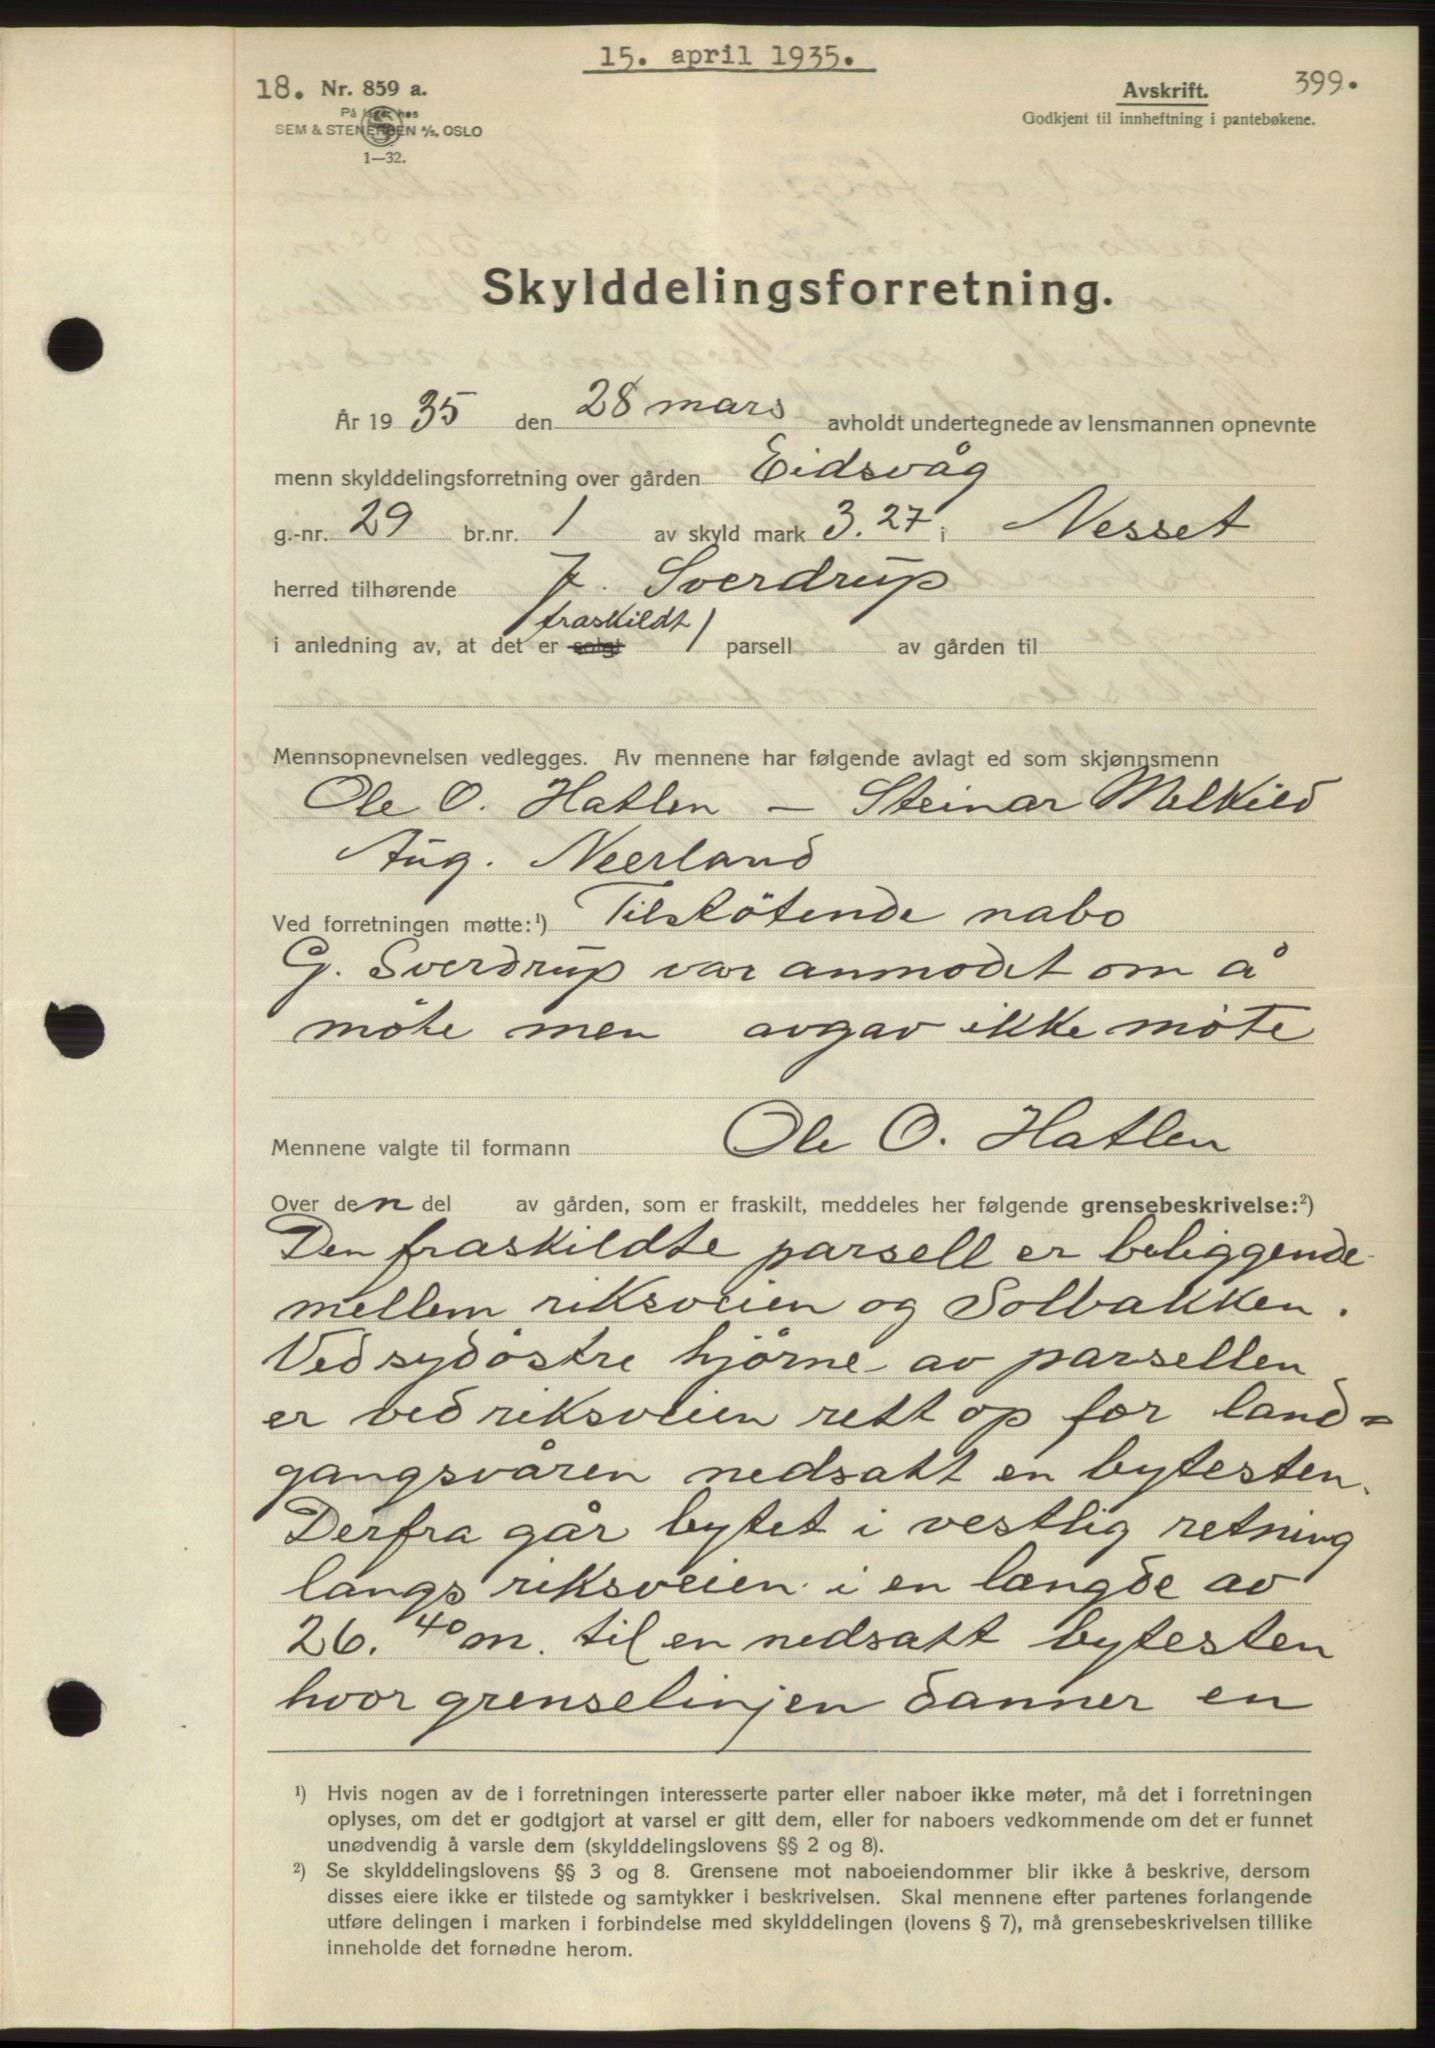 15. april 1935.
18. Nr. 859 a.
På lager hos
SEM & STENERSEN A/S, OSLO
1—32.
Avskrift.
399.
Godkjent til innheftning i pantebøkene.
Skylddelingsforretning.
År 1935 den 28 mars avholdt undertegnede av lensmannen opnevnte
menn skylddelingsforretning over gården Eidsvåg
g.-nr. 29 br.nr. 1 av skyld mark 3.27 i Nesset
herred tilhørende J. Sverdrup
fraskildt
i anledning av, at det er solgt 1 parsell av gården til
Mennsopnevnelsen vedlegges. Av mennene har følgende avlagt ed som skjønnsmenn
Ole O. Hatlen — Steinar Melkild
Aug. Neerland
Ved forretningen møtte:¹) Tilstötende nabo
G. Sverdrup var anmodet om å
möte men avgav ikke möte
Mennene valgte til formann Ole O. Hatlen
Over den del av gården, som er fraskilt, meddeles her følgende grensebeskrivelse:²)
Den fraskildte parsell er beliggende
mellem riksveien og Solbakken.
Ved sydöstre hjörne av parsellen
er ved riksveien rett op for land=
gangsvåren nedsatt en bytesten.
Derfra går bytet i vestlig retning
langs riksveien i en længde av
26.40 m. til en nedsatt bytesten
hvor grenselinjen danner en
¹) Hvis nogen av de i forretningen interesserte parter eller naboer ikke møter, må det i forretningen
oplyses, om det er godtgjort at varsel er gitt dem, eller for naboers vedkommende om det er funnet
unødvendig å varsle dem (skylddelingslovens §§ 2 og 8).
²) Se skylddelingslovens §§ 3 og 8. Grensene mot naboeiendommer blir ikke å beskrive, dersom
disses eiere ikke er tilstede og samtykker i beskrivelsen. Skal mennene efter partenes forlangende
utføre delingen i marken i forbindelse med skylddelingen (lovens § 7), må grensebeskrivelsen tillike
inneholde det fornødne herom.